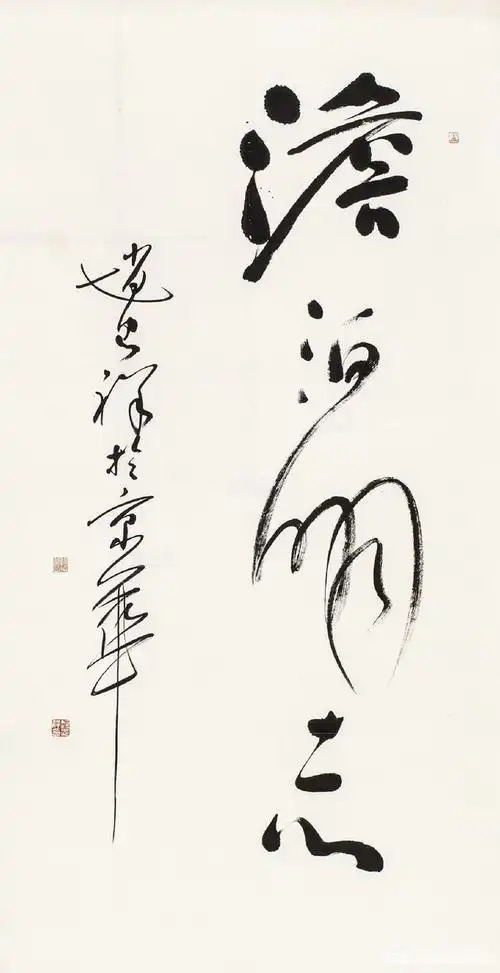 澹泊明志
趙吉祥於京華